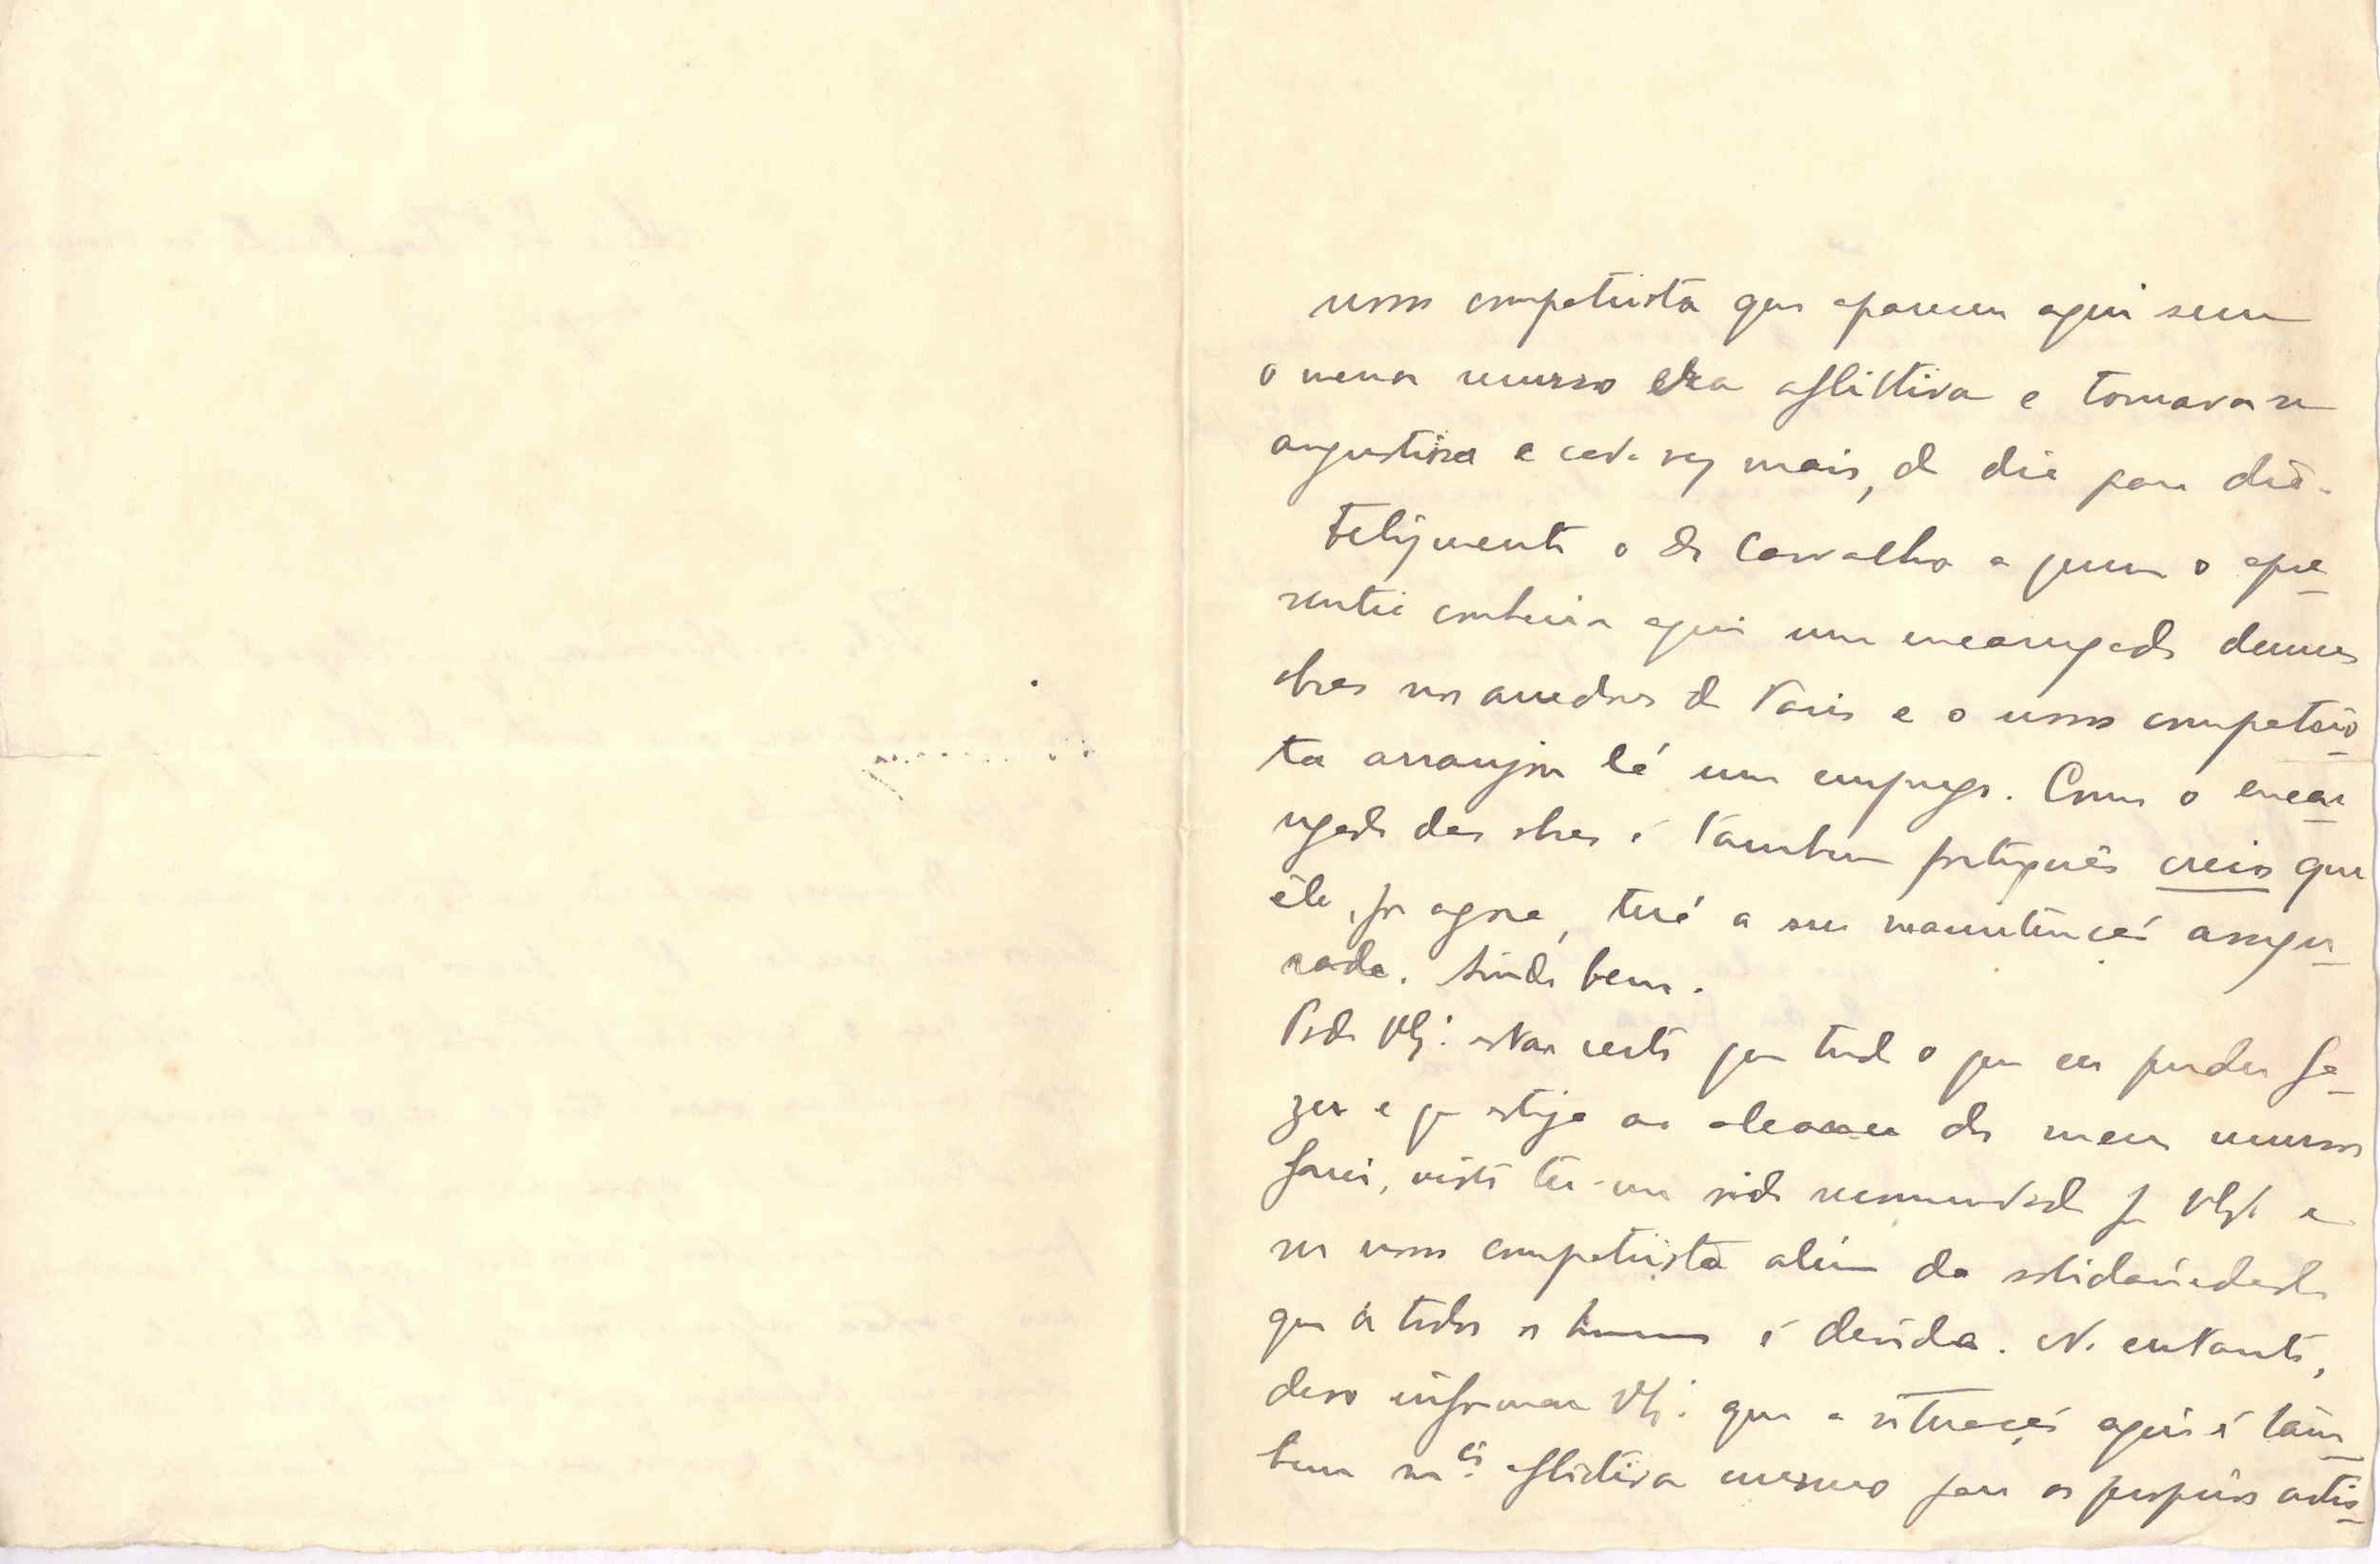 nosso compatriota que apareceu aqui sem
o menor recurso era aflittiva e tornava se
angustiosa e cada vez mais, de dia para dia.
Felizmente o Dr Carvalho a quem o apre_
sentei conhecia aqui um encarregado dumas
obras nos arredores de Paris e o nosso compatrio_
ta arranjou lá um emprego. Como o encar_
regado das obras é tambem português creio que
êle, por agora, terá a sua manutenção assegu_
rada. Ainda bem.
Pode V. estar certo que tudo o que eu puder fa_
zer e que esteja ao alcance dos meus recursos
farei, visto ter-me sido recomendado por V. e
ser nosso compatriota além da solidariedade
que a todos os homens é devida. No entanto,
devo informar V. que a situação aqui é tam_
bem aflictiva mesmo para os proprios artis_